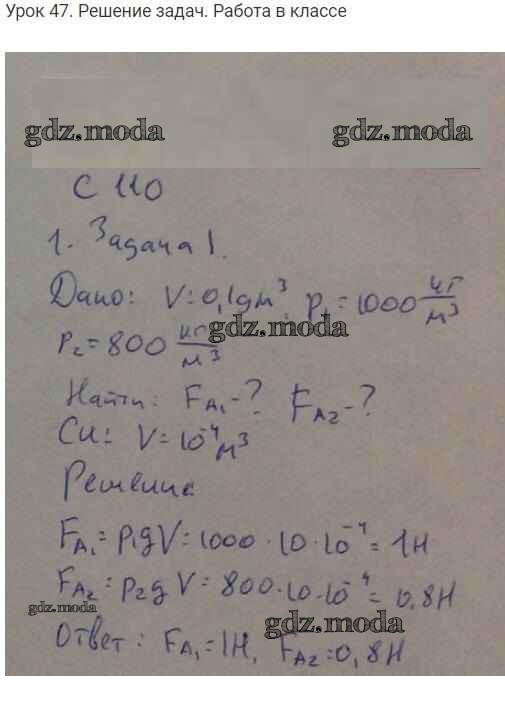 Урок 47. Решение задач. Работа в классе
gdz.moda
gdz.moda
С 110
1. Задача 1.
Дано: V=0,1дм³, ρ₁=1000 кг/м³
gdz.moda
ρ₂=800 кг/м³
Найти: F_A₁-? F_A₂-?
Си: V=10⁻⁴м³
Решение
F_A₁=ρ₁gV=1000·10·10⁻⁴=1Н
F_A₂=ρ₂gV=800·10·10⁻⁴=0,8Н
gdz.moda
gdz.moda
Ответ: F_A₁=1Н, F_A₂=0,8Н